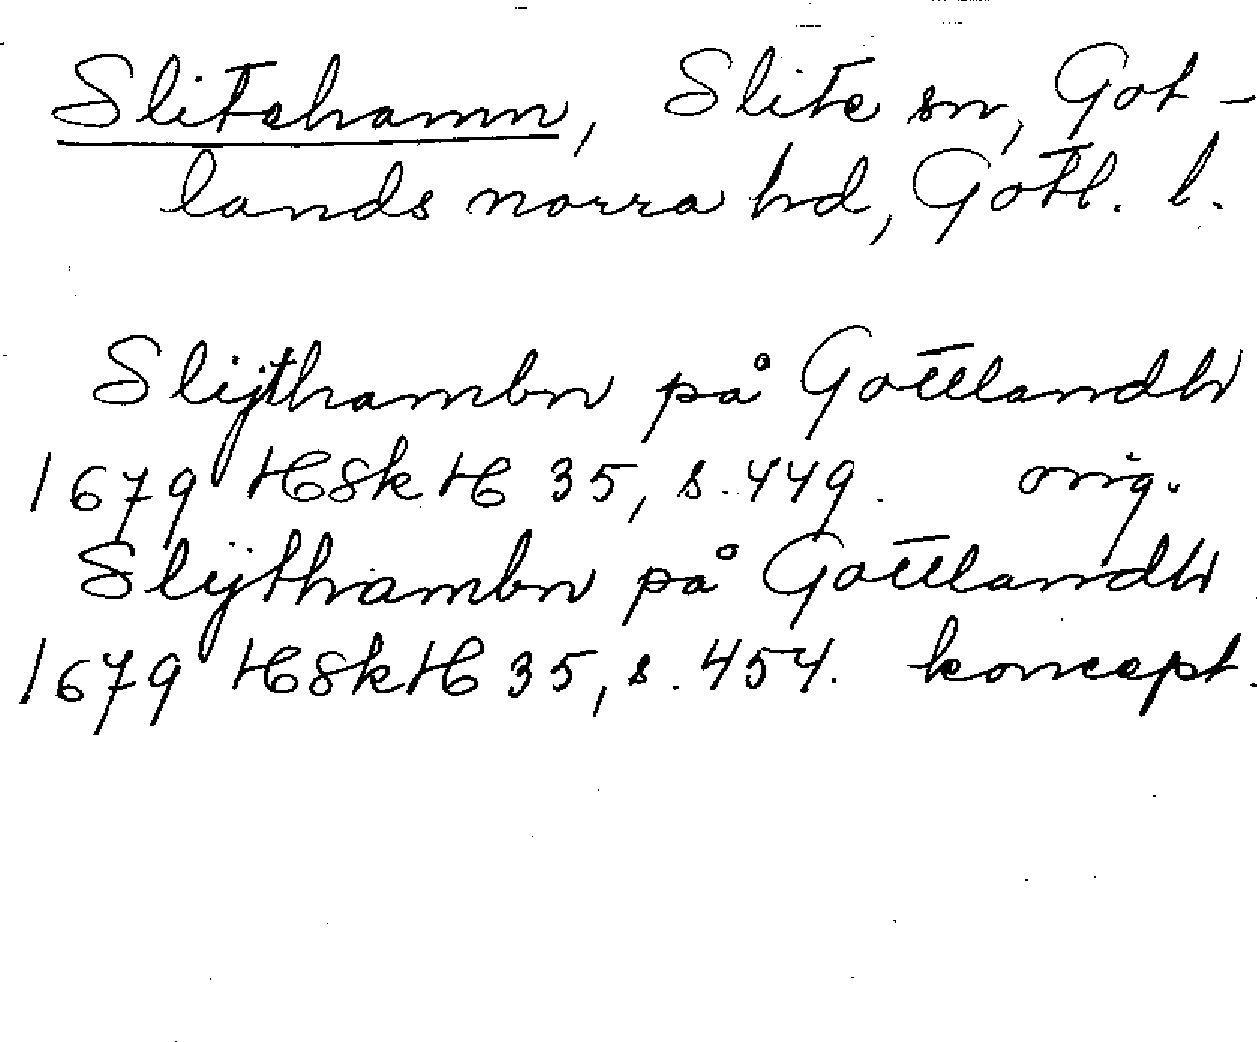 Slitehamn, Slite sn, Got-
lands norra hd, Gotl. l.
Slijthambn på Gottlandh
1679 HSkH 35, s. 449. orig.
Slijthambn på Gottlandh
1679 HSkH 35, s. 454. koncept.